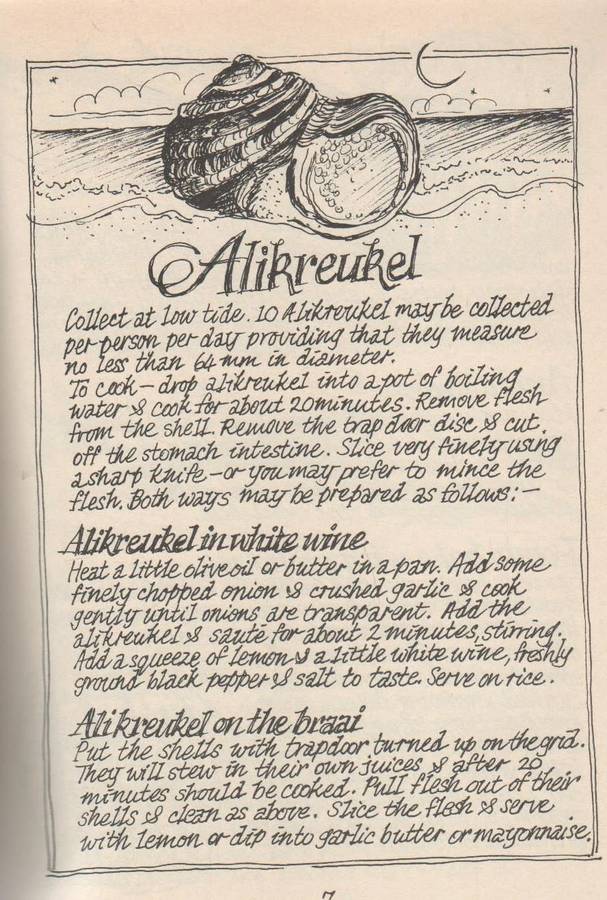 Alikreukel
Collect at low tide. 10 Alikreukel may be collected
per person per day providing that they measure
no less than 64 mm in diameter.
To cook – drop alikreukel into a pot of boiling
water & cook for about 20 minutes. Remove flesh
from the shell. Remove the trap door disc & cut
off the stomach intestine. Slice very finely using
a sharp knife – or you may prefer to mince the
flesh. Both ways may be prepared as follows: –
Alikreukel in white wine
Heat a little olive oil or butter in a pan. Add some
finely chopped onion & crushed garlic & cook
gently until onions are transparent. Add the
alikreukel & sauté for about 2 minutes, stirring.
Add a squeeze of lemon & a little white wine, freshly
ground black pepper & salt to taste. Serve on rice.
Alikreukel on the braai
Put the shells with trapdoor turned up on the grid.
They will stew in their own juices & after 20
minutes should be cooked. Pull flesh out of their
shells & clean as above. Slice the flesh & serve
with lemon or dip into garlic butter or mayonnaise.
7